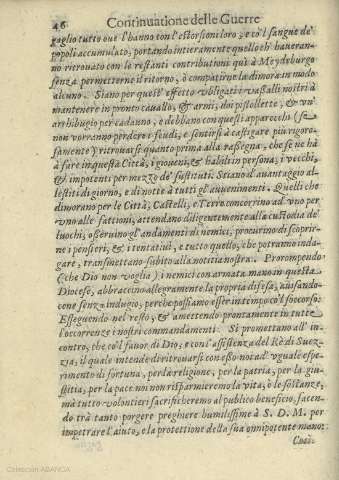 46 Continuatione delle Guerre
gaglio tutto oue l'hanno con l'estorsioni loro, e co'l sangue de'
popoli accumulato, portando intieramente quello ch' haueran-
no ritrouato con le restanti contributioni quì à Meydeburgo
senza permetterne il ritorno, ò compatirne la dimora in modo
alcuno. Siano per quest' effetto obligati i vassalli nostri à
mantenere in pronto cauallo, & armi, doi pistollette, & vn'
archibugio per cadauno, e debbano con questi apparecchi (se
non vorranno perdere i feudi, e sentirsi à castigare più rigoro-
samente) ritrouarsi quanto prima alla rassegna, che se ne hà
à fare in questa Città, i gioueni, & habili in persona; i vecchi,
& impotenti per mezzo de' sustituti. Stiano d'auantaggio al-
lestiti di giorno, e di notte à tutti gl' auuenimenti. Quelli che
dimorano per le Città, Castelli, e Terre concorrino ad vno per
vno alle fattioni, attendano diligentemente alla custodia de'
fuochi, osseruino gl'andamenti di nemici, procurino di scoprir-
ne i pensieri, & i tentatiui, e tutto quello, che potranno inda-
gare, transmettano subito alla notitia nostra. Prorompendo
(che Dio non voglia) i nemici con armata mano in questa
Diocese, abbraccino allegramente la propria difesa, auisando-
cene senza indugio, perche possiamo esser in tempo co'l soccorso:
Esseguendo nel resto, & amettendo prontamente in tutte
l'occorrenze i nostri commandamenti. Si promettano all' in-
contro, che co'l fauor di Dio, e con l'assistenza del Rè di Suez-
zia, il quale intende di ritrouarsi con esso noi ad vguale espe-
rimento di fortuna, per la religione, per la patria, per la giu-
stitia, per la pace noi non risparmieremo la vita, ò le sostanze;
mà tutto volontieri sacrificheremo al publico beneficio, facen-
do trà tanto porgere preghiere humilissime à S. D. M. per
impetrare l'aiuto, e la protettione della sua onnipotente mano:
Così
Colección ABANCA